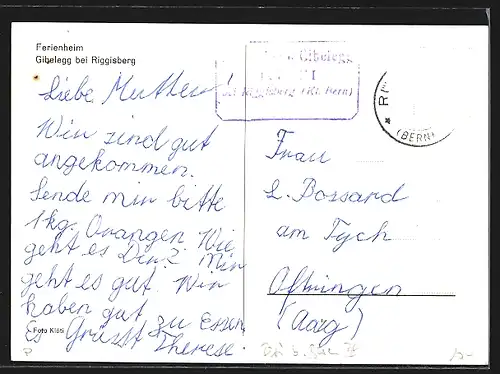 Ferienheim
Gibelegg bei Riggisberg
Liebe Mutter!
Wir sind gut
angekommen.
Sende mir bitte
1 kg. Orangen. Wie
geht es Dir? Mir
geht es gut. Wir
haben gut
zu Essen.
Es Grüsst Therese.
Foto Kläti
Gibelegg
bei Riggisberg (Kt. Bern)
(BERN)
Frau
L. Bossard
am Tych
Oftringen
(Aarg)